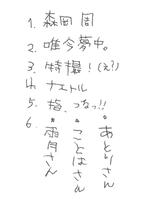 1. 森岡 周
2. 唯今夢中。
3. 特撮!(え?)
4. ナエトル
5. 指、つなっ!!
6.
・あとりさん
・ことはさん
・雨月さん